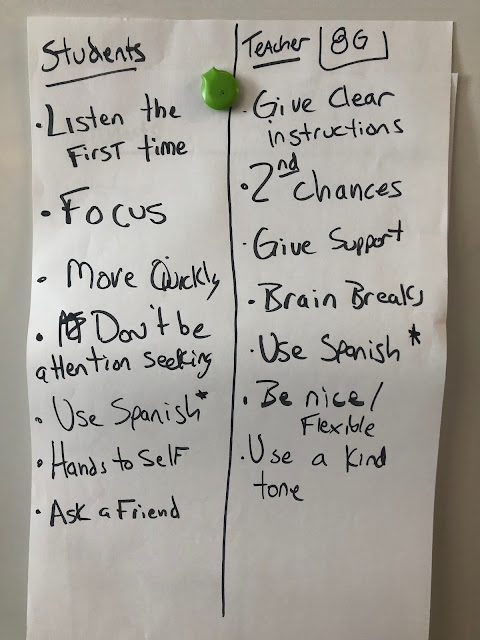 Students
• Listen the
First time
• Focus
• Move Quickly
• Don't be
attention seeking
• Use Spanish*
• Hands to Self
• Ask a Friend
Teacher 8G
• Give Clear
instructions
• 2nd chances
• Give Support
• Brain Breaks
• Use Spanish*
• Be nice/
Flexible
• Use a kind
tone